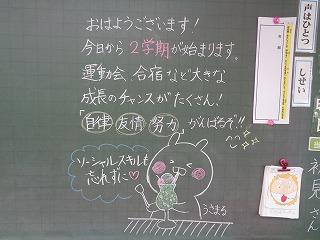 おはようございます!
今日から2学期が始まります。
運動会、合宿など大きな
成長のチャンスがたくさん!
「自律 友情 努力」がんばるぞ!!
ソーシャルスキルも
忘れずに♡
うさまる
声はひとつ
しせい